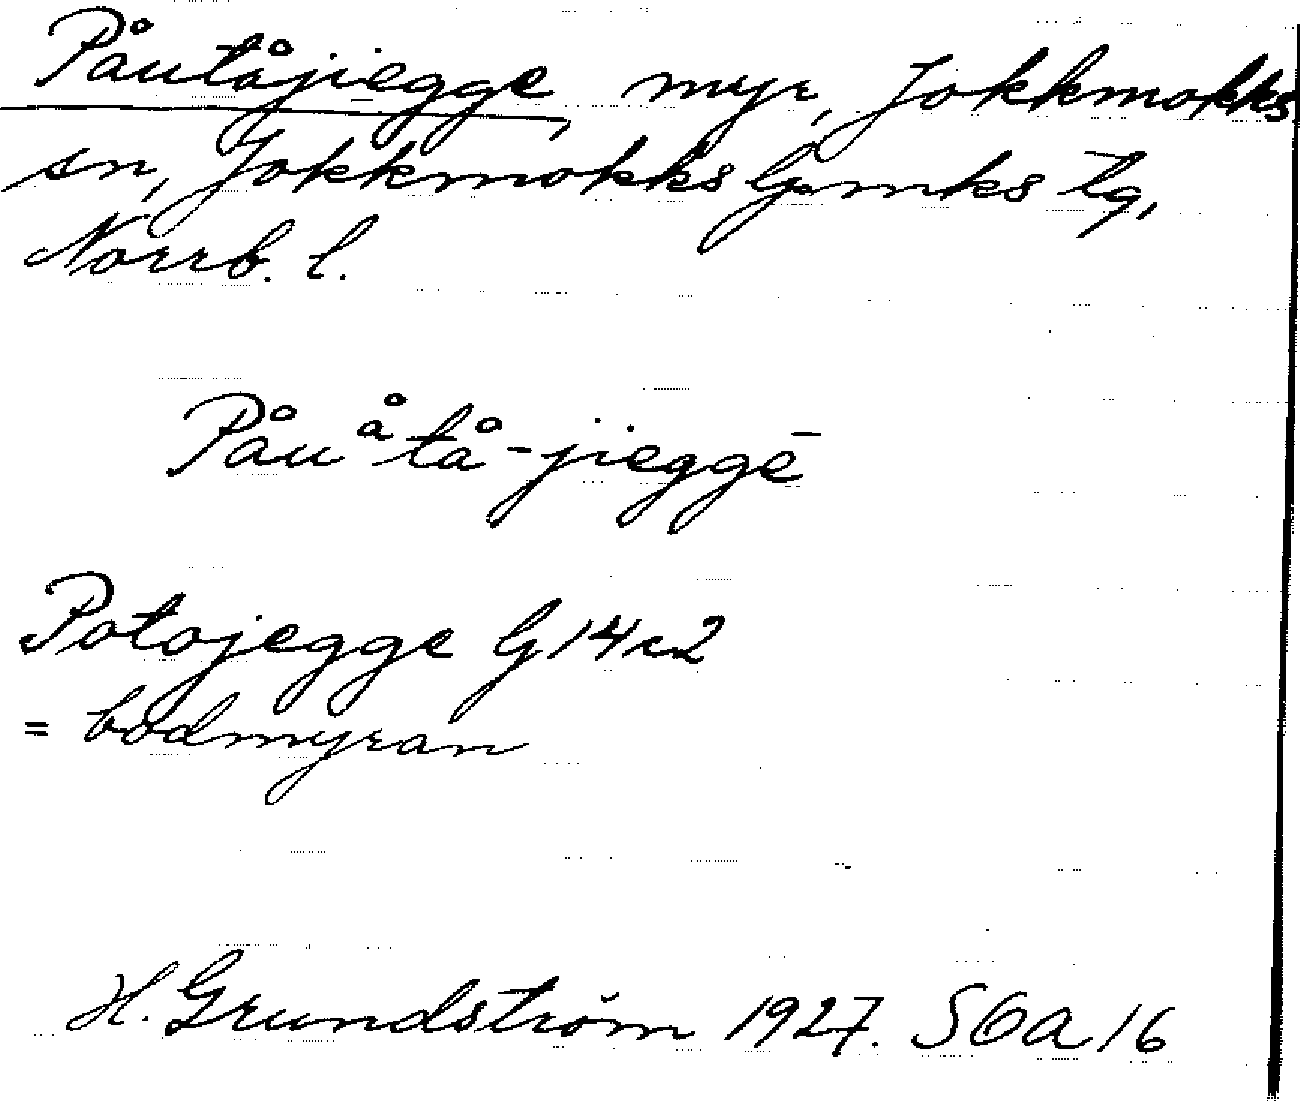 Påutåjiegge, myr, Jokkmokks
sn, Jokkmokks lpmks tg,
Norrb. l.
Påuåtå-jieggē
Potojegge G14c2
= bodmyran
H. Grundström 1927. SOA 16